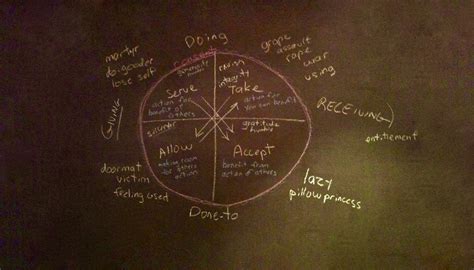 Doing
martyr
do-gooder
lose self
consent
grope
assault
rape
war
using
integrity
Serve
action for
benefit of
others
Take
action for
GIVING
RECEIVING
entitlement
surrender
gratitude
Allow
making room
for others
action
Accept
benefit from
action of others
doormat
victim
feeling used
lazy
pillow princess
Done-to